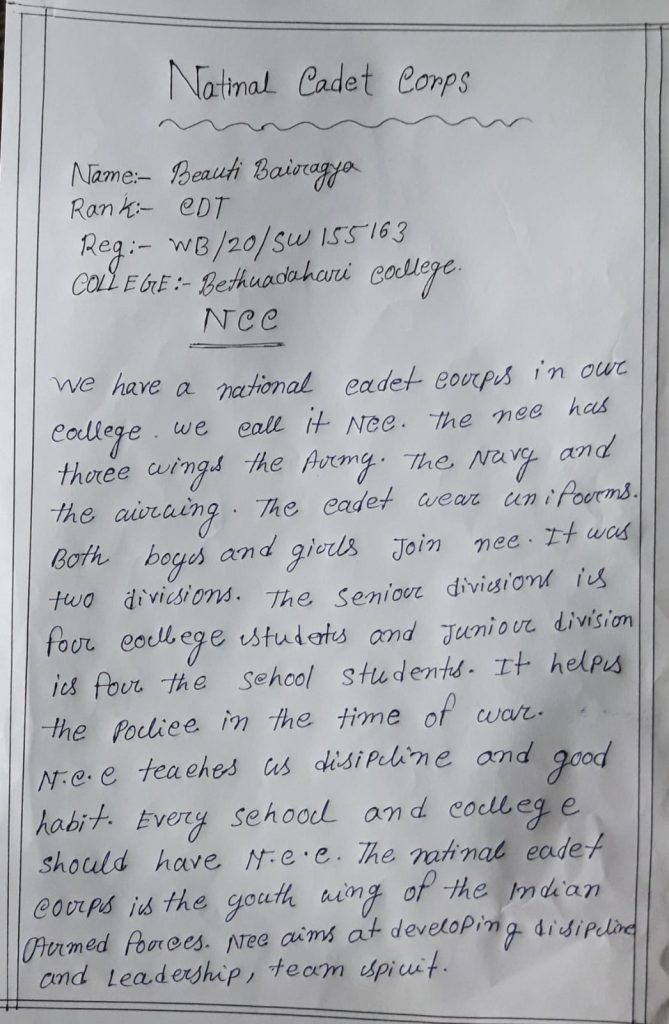 Natinal Cadet Corps
Name:- Beauti Bairagya
Rank:- CDT
Reg:- WB/20/SW 155163
COLLEGE:- Bethuadahari College.
NCC
We have a national cadet corps in our
college. we call it NCC. The ncc has
three wings the Army. The Navy and
the airwing. The cadet wear uniforms.
Both boys and girls Join ncc. It was
two divisions. The Senior divisions is
for college students and Junior division
is for the School Students. It helps
the Police in the time of war.
N.C.C teaches us disipline and good
habit. Every school and college
should have N.C.C. The natinal cadet
corps is the youth wing of the Indian
Armed forces. Ncc aims at developing disipline
and Leadership, team spirit.